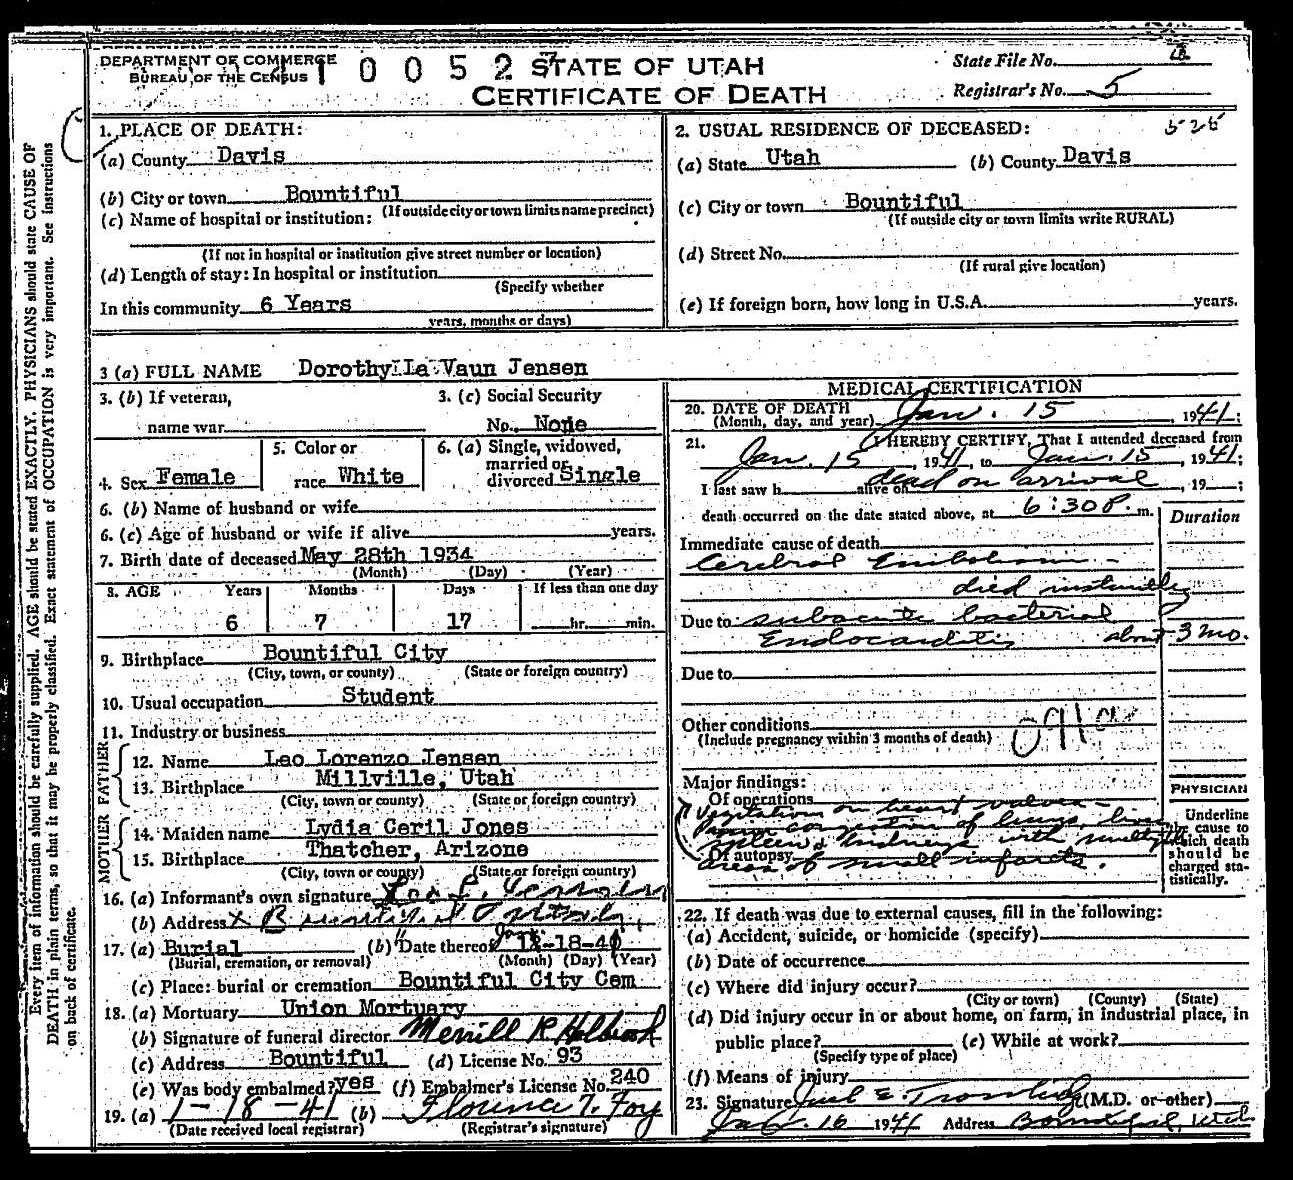 DEPARTMENT OF COMMERCE
BUREAU OF THE CENSUS
0 0 5 2 7
STATE OF UTAH
CERTIFICATE OF DEATH
State File No.
Registrar's No. 5
Every item of information should be carefully supplied. AGE should be stated EXACTLY. PHYSICIANS should state CAUSE OF
DEATH in plain terms, so that it may be properly classified. Exact statement of OCCUPATION is very important. See Instructions
on back of certificate.
1. PLACE OF DEATH:
(a) County Davis
(b) City or town Bountiful
(If outside city or town limits name precinct)
(c) Name of hospital or institution:
(If not in hospital or institution give street number or location)
(d) Length of stay: In hospital or institution
(Specify whether
In this community 6 Years
years, months or days)
2. USUAL RESIDENCE OF DECEASED:
(a) State Utah (b) County Davis
(c) City or town Bountiful
(If outside city or town limits write RURAL)
(d) Street No.
(If rural give location)
(e) If foreign born, how long in U.S.A. years.
3 (a) FULL NAME Dorothy La Vaun Jensen
3. (b) If veteran,
name war
3. (c) Social Security
No. None
4. Sex Female
5. Color or
race White
6. (a) Single, widowed,
married or
divorced Single
6. (b) Name of husband or wife
6. (c) Age of husband or wife if alive years.
7. Birth date of deceased May 28th 1934
(Month) (Day) (Year)
8. AGE Years Months Days If less than one day
6 7 17 hr. min.
9. Birthplace Bountiful City
(City, town, or county) (State or foreign country)
10. Usual occupation Student
11. Industry or business
FATHER
12. Name Leo Lorenzo Jensen
13. Birthplace Millville, Utah
(City, town or county) (State or foreign country)
MOTHER
14. Maiden name Lydia Ceril Jones
15. Birthplace Thatcher, Arizone
(City, town or county) (State or foreign country)
16. (a) Informant's own signature Leo L. Jensen
(b) Address x Bountiful Utah
17. (a) Burial (b) Date thereof -18-41
(Burial, cremation, or removal) (Month) (Day) (Year)
(c) Place: burial or cremation Bountiful City Cem
18. (a) Mortuary Union Mortuary
(b) Signature of funeral director Merrill R Holbrook
(c) Address Bountiful (d) License No. 93
(e) Was body embalmed? yes (f) Embalmer's License No. 240
19. (a) 1-18-41 (b) Florence T. Foy
(Date received local registrar) (Registrar's signature)
MEDICAL CERTIFICATION
20. DATE OF DEATH
(Month, day, and year) Jan. 15, 1941;
21. I HEREBY CERTIFY, That I attended deceased from
Jan. 15, 1941, to Jan. 15, 1941;
I last saw h alive on dead on arrival, 19 ;
death occurred on the date stated above, at 6:30 P. m.
Duration
Immediate cause of death
Cerebral Embolism -
died instantly
Due to subacute bacterial
Endocarditis about 3 mo.
Due to
Other conditions
(Include pregnancy within 3 months of death)
Major findings:
Of operations
Vegetations on heart valves -
congestion of lungs, liver
spleen & kidneys with multiple
Of autopsy
areas of small infarcts.
PHYSICIAN
Underline
the cause to
which death
should be
charged sta-
tistically.
22. If death was due to external causes, fill in the following:
(a) Accident, suicide, or homicide (specify)
(b) Date of occurrence
(c) Where did injury occur?
(City or town) (County) (State)
(d) Did injury occur in or about home, on farm, in industrial place, in
public place? (e) While at work?
(Specify type of place)
(f) Means of injury
23. Signature E. Trowbridge (M.D. or other)
Jan. 16 1941 Address Bountiful, Utah